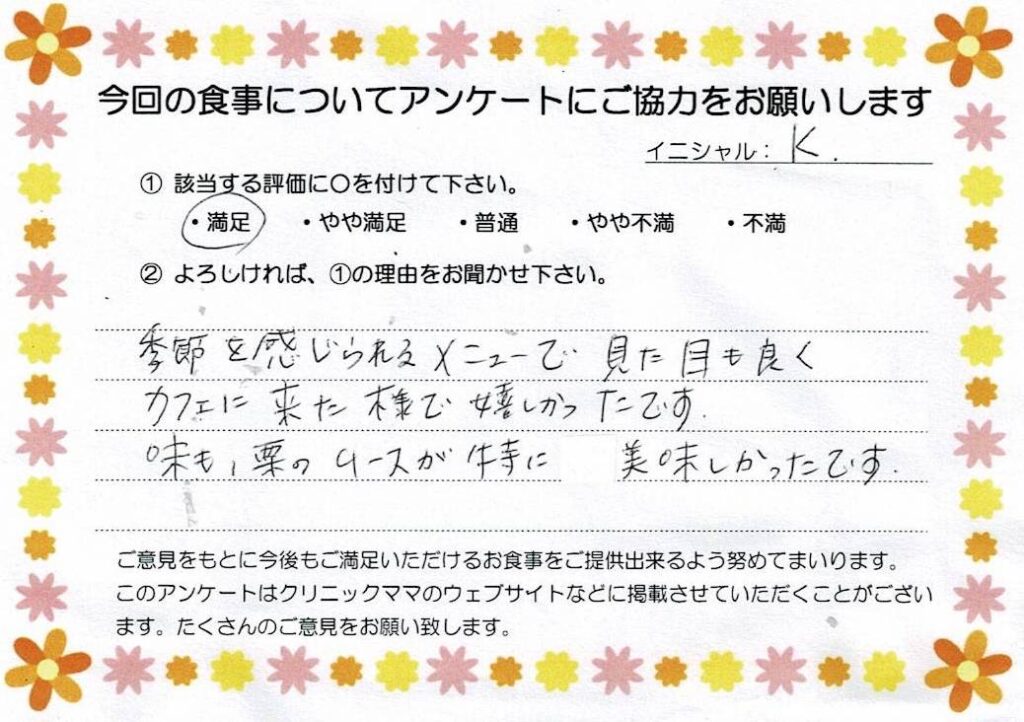 今回の食事についてアンケートにご協力をお願いします
イニシャル: K.
① 該当する評価に〇を付けて下さい。
・満足 ・やや満足 ・普通 ・やや不満 ・不満
② よろしければ、①の理由をお聞かせ下さい。
季節を感じられるメニューで 見た目も良く
カフェに来た様で嬉しかったです.
味も、栗のムースが特に 美味しかったです.
ご意見をもとに今後もご満足いただけるお食事をご提供出来るよう努めてまいります。
このアンケートはクリニックママのウェブサイトなどに掲載させていただくことがござい
ます。たくさんのご意見をお願い致します。